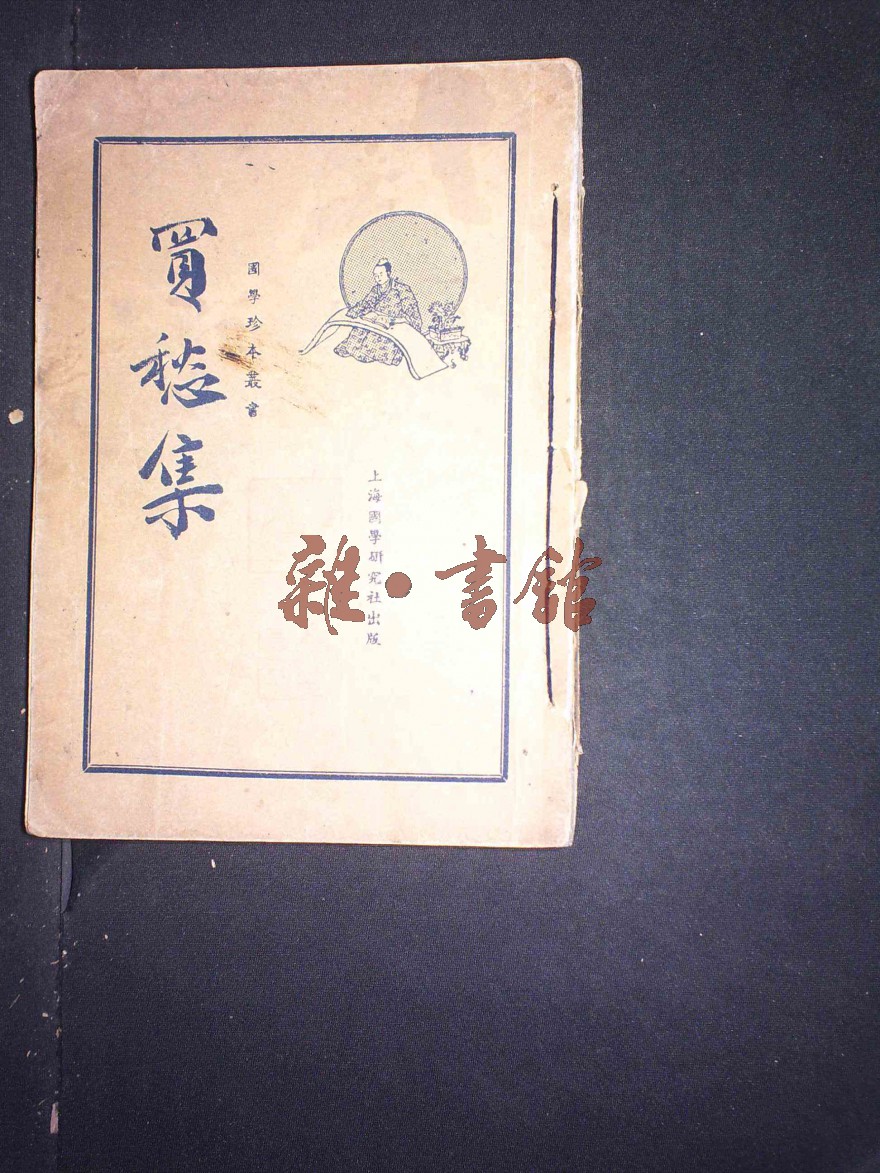 買愁集
國學珍本叢書
上海國學研究社出版
雜·書館